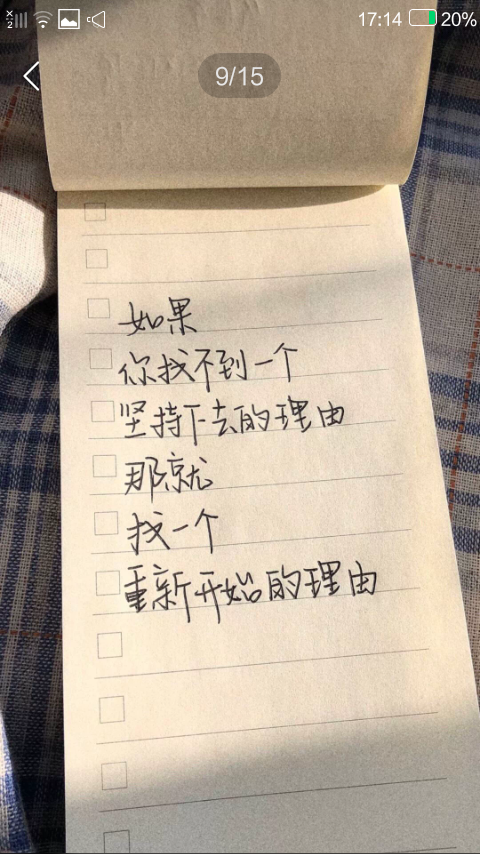 17:14
20%
9/15
如果
你找不到一个
坚持下去的理由
那就
找一个
重新开始的理由